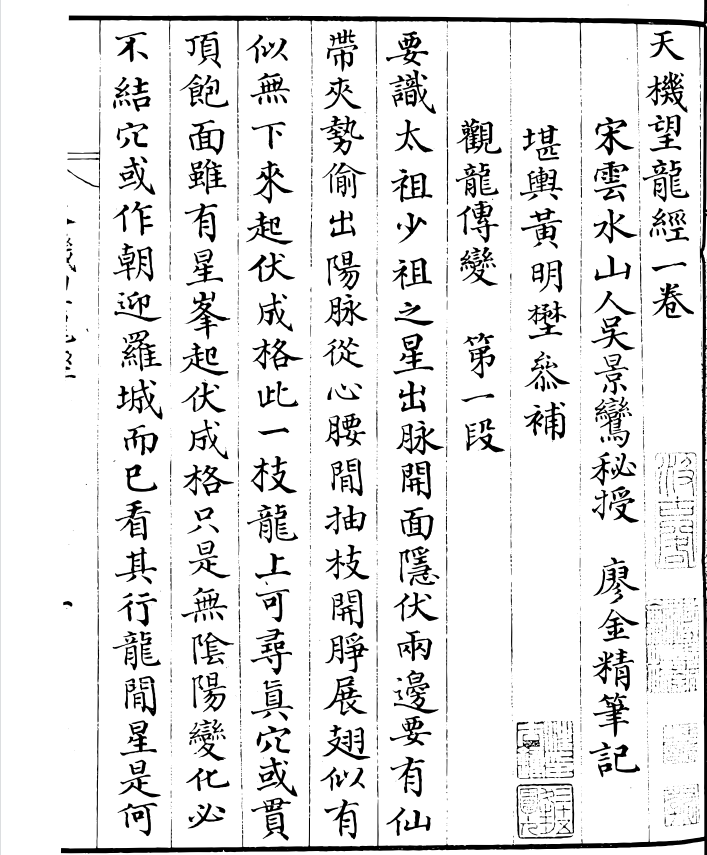 天機望龍經一卷
宋雲水山人吳景鸞秘授　廖金精筆記
堪輿黃明㘰叅補
觀龍傳變　第一段
要識太祖少祖之星出脉開面隱伏兩邊要有仙
帶夾勢偷出陽脉從心腰間抽枝開睜展翅似有
似無下來起伏成格此一枝龍上可尋真穴或貫
頂飽面雖有星峯起伏成格只是無陰陽變化必
不結穴或作朝迎羅城而已看其行龍間星是何